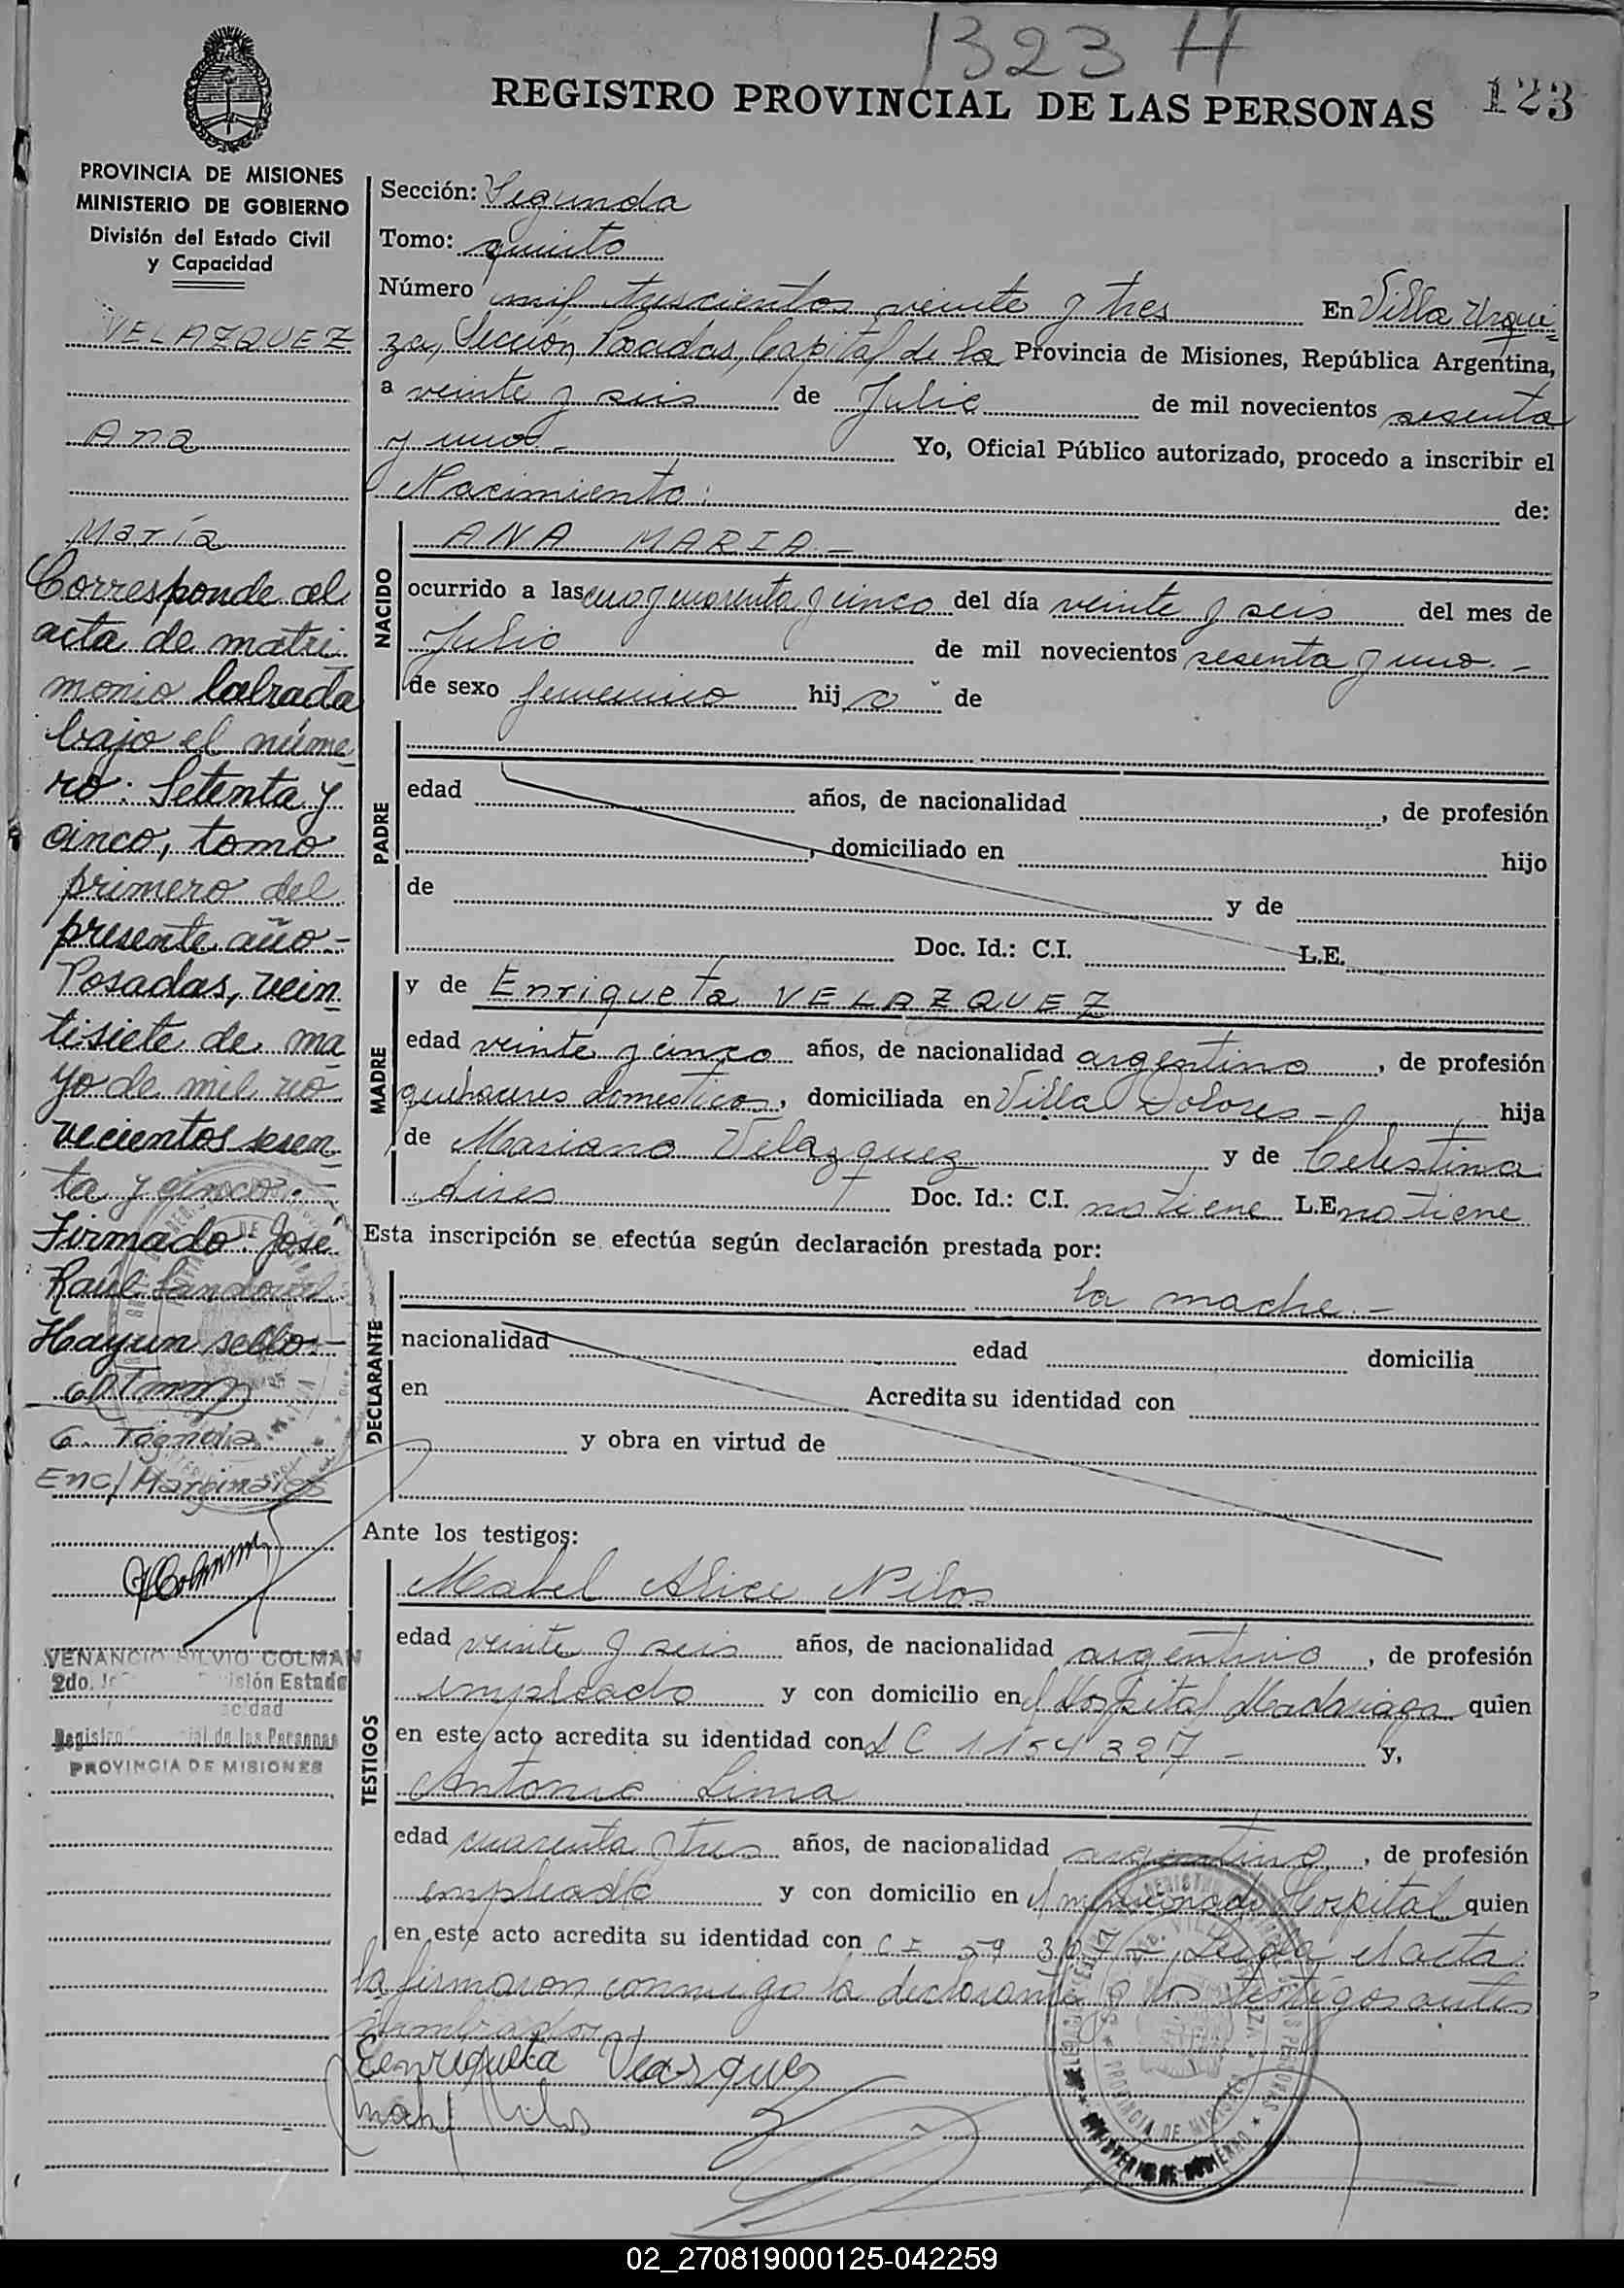 1323 H
REGISTRO PROVINCIAL DE LAS PERSONAS 123
PROVINCIA DE MISIONES
MINISTERIO DE GOBIERNO
División del Estado Civil
y Capacidad
VELAZQUEZ
Ana
María
Corresponde al
acta de matri
monio labrada
bajo el núme
ro: Setenta y
cinco, tomo
primero del
presente año.-
Posadas, vein
tisiete de ma
yo de mil no
vecientos sesen
ta y cinco.-
Firmado: Jose
Raúl Sandoval
Hay un sello.-
Enc/Marginales
VENANCIO SILVIO COLMAN
2do. Estado
Registro de las Personas
PROVINCIA DE MISIONES
Sección: Segunda
Tomo: quinto
Número mil trescientos veinte y tres En Villa Urqui
za, Sección Posadas, Capital de la Provincia de Misiones, República Argentina,
a veinte y seis de Julio de mil novecientos sesenta
y uno.- Yo, Oficial Público autorizado, procedo a inscribir el
Nacimiento: de:
NACIDO
ANA MARIA.-
ocurrido a las uno y cuarenta y cinco del día veinte y seis del mes de
Julio de mil novecientos sesenta y uno.-
de sexo femenino hij a de
PADRE
edad años, de nacionalidad , de profesión
, domiciliado en hijo
de y de
Doc. Id.: C.I. L.E.
MADRE
y de Enriqueta VELAZQUEZ
edad veinte y cinco años, de nacionalidad argentina , de profesión
quehaceres domesticos, domiciliada en Villa Dolores - hija
de Mariano Velazquez y de Celestina
Aires Doc. Id.: C.I. no tiene L.E. no tiene
Esta inscripción se efectúa según declaración prestada por:
DECLARANTE
la madre.-
nacionalidad edad domicilia
en Acredita su identidad con
y obra en virtud de
Ante los testigos:
TESTIGOS
Mabel Alice Nilos
edad veinte y seis años, de nacionalidad argentino , de profesión
empleado y con domicilio en el Hospital Madariaga quien
en este acto acredita su identidad con L C 1154327 - y,
Antonio Lima
edad cuarenta y tres años, de nacionalidad argentino , de profesión
empleado y con domicilio en el mencionado Hospital quien
en este acto acredita su identidad con C I 59 Leida el acta
la firmaron conmigo la declarante y los testigos antes
nombrados
Enriqueta Veasquez
02_270819000125-042259